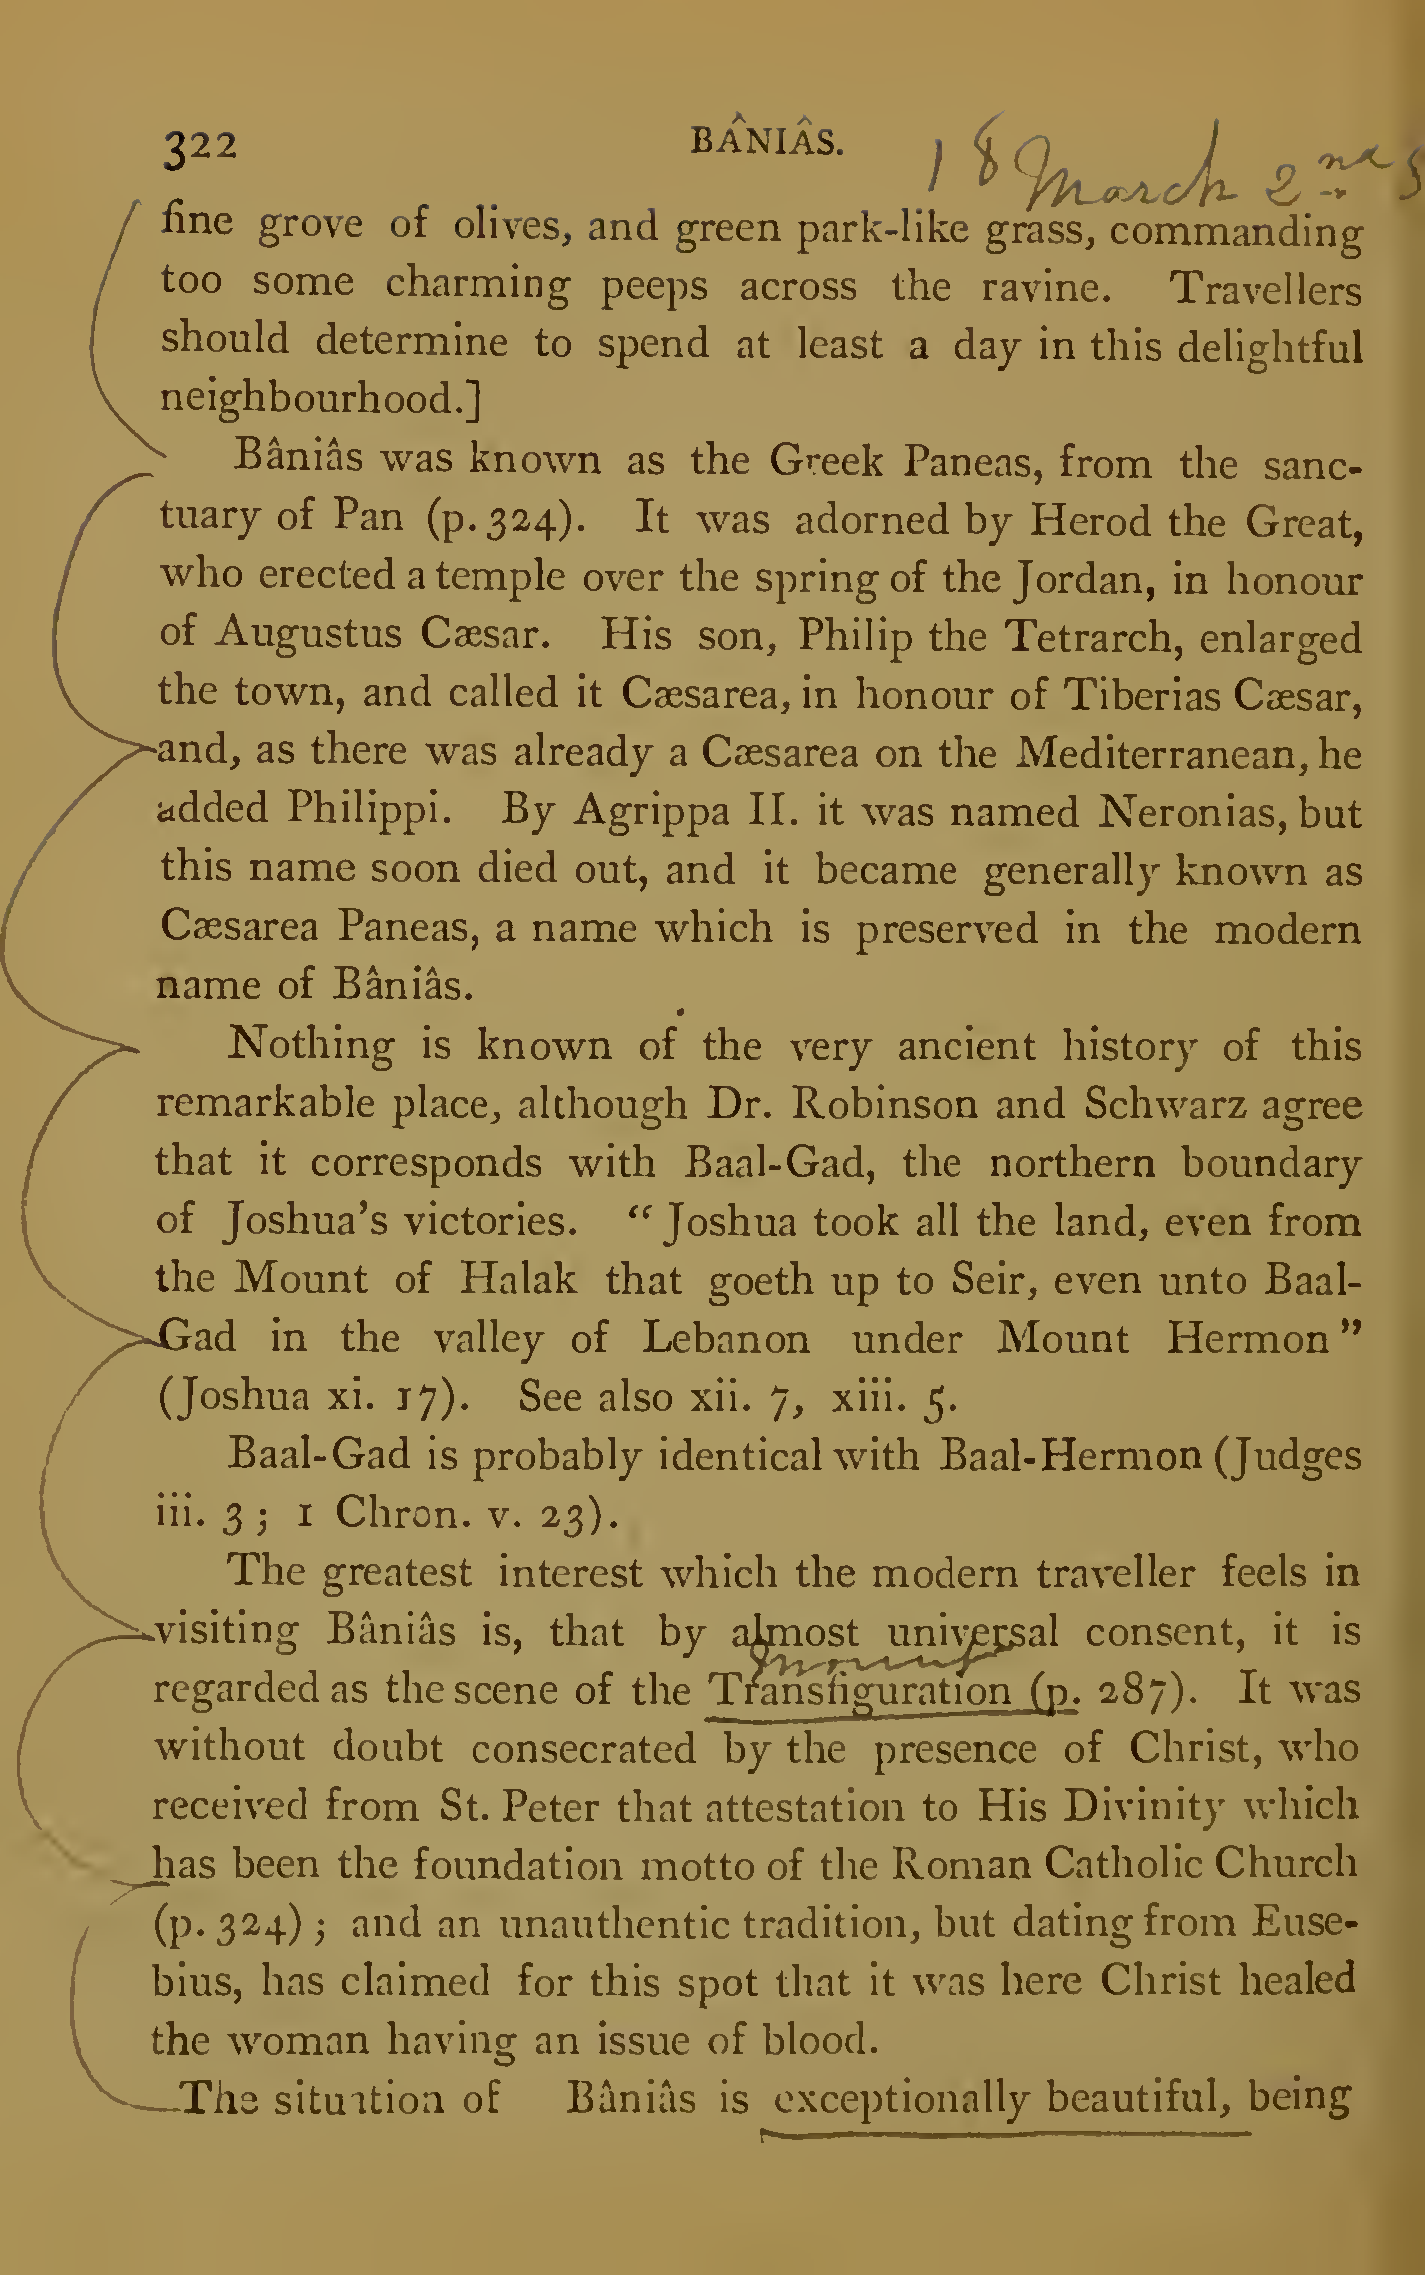 322 BÂNIÂS.
18 March 2nd
fine grove of olives, and green park-like grass, commanding
too some charming peeps across the ravine. Travellers
should determine to spend at least a day in this delightful
neighbourhood.]
Bâniâs was known as the Greek Paneas, from the sanc-
tuary of Pan (p. 324). It was adorned by Herod the Great,
who erected a temple over the spring of the Jordan, in honour
of Augustus Cæsar. His son, Philip the Tetrarch, enlarged
the town, and called it Cæsarea, in honour of Tiberias Cæsar,
and, as there was already a Cæsarea on the Mediterranean, he
added Philippi. By Agrippa II. it was named Neronias, but
this name soon died out, and it became generally known as
Cæsarea Paneas, a name which is preserved in the modern
name of Bâniâs.
Nothing is known of the very ancient history of this
remarkable place, although Dr. Robinson and Schwarz agree
that it corresponds with Baal-Gad, the northern boundary
of Joshua's victories. “Joshua took all the land, even from
the Mount of Halak that goeth up to Seir, even unto Baal-
Gad in the valley of Lebanon under Mount Hermon”
(Joshua xi. 17). See also xii. 7, xiii. 5.
Baal-Gad is probably identical with Baal-Hermon (Judges
iii. 3; 1 Chron. v. 23).
The greatest interest which the modern traveller feels in
visiting Bâniâs is, that by almost universal consent, it is
mount
regarded as the scene of the Transfiguration (p. 287). It was
without doubt consecrated by the presence of Christ, who
received from St. Peter that attestation to His Divinity which
has been the foundation motto of the Roman Catholic Church
(p. 324); and an unauthentic tradition, but dating from Euse-
bius, has claimed for this spot that it was here Christ healed
the woman having an issue of blood.
The situation of Bâniâs is exceptionally beautiful, being